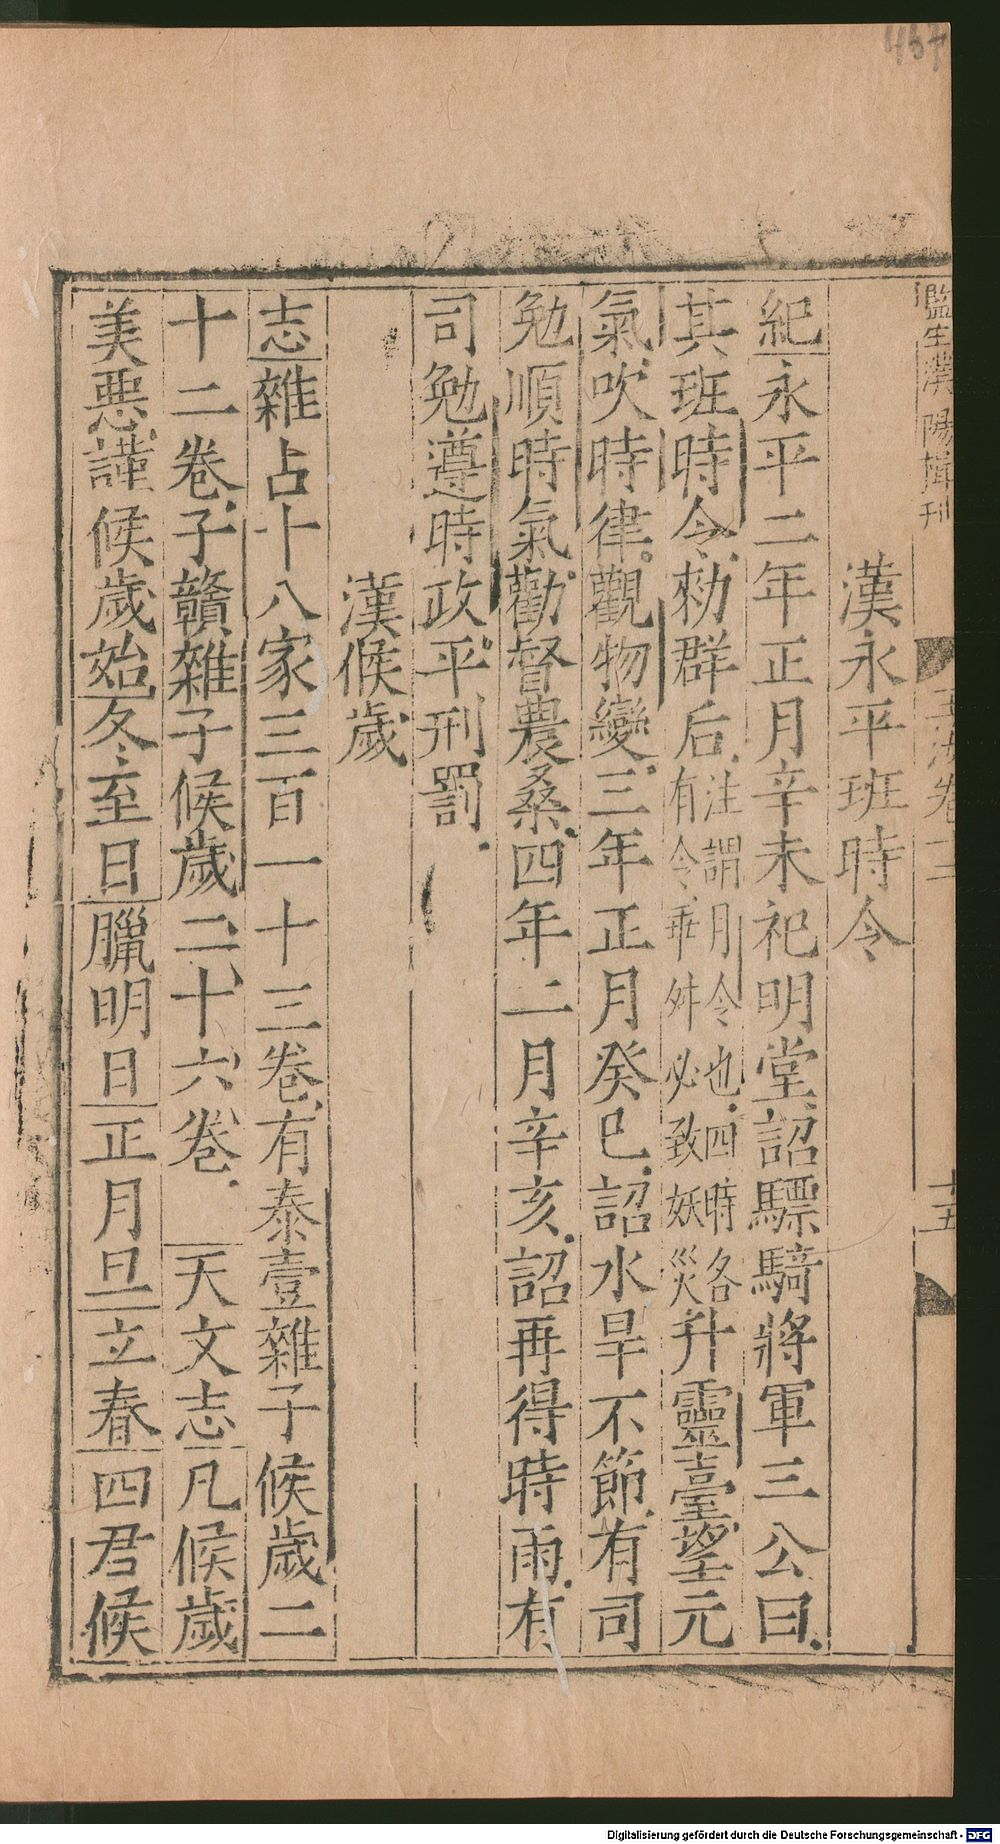 漢永平班時令
紀永平二年正月辛未祀明堂詔驃騎將軍三公曰
其班時令勑群后注謂月令也四時各有令乖舛必致妖災升靈臺望元
氣吹時律觀物變三年正月癸巳詔水旱不節有司
勉順時氣勸督農桑四年二月辛亥詔再得時雨有
司勉遵時政平刑罰
漢候歲
志雜占十八家三百一十三卷有泰壹雜子候歲二
十二卷子贛雜子候歲二十六卷 天文志凡候歲
美惡謹候歲始冬至日臘明日正月旦立春四君候
監生漢陽楫刊
十五
467
Digitalisierung gefördert durch die Deutsche Forschungsgemeinschaft - DFG